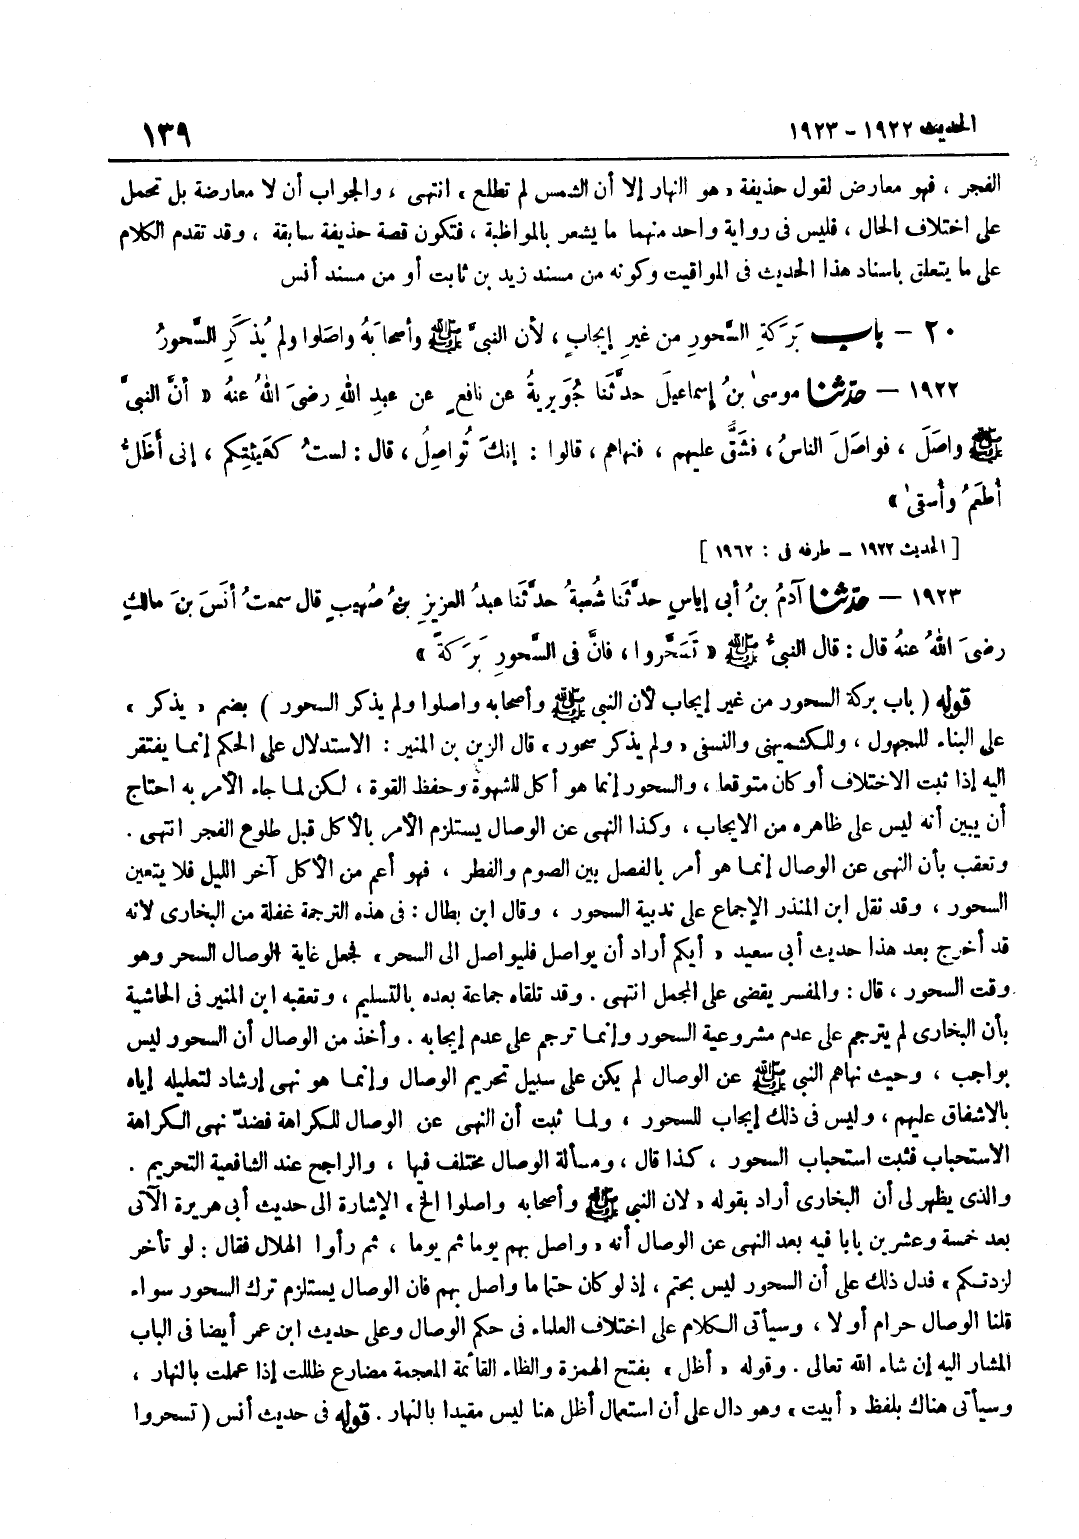 الحديث ١٩٢٢ - ١٩٢٣
١٣٩
الفجر ، فهو معارض لقول حذيفة « هو النهار إلا أن الشمس لم تطلع » انتهى ، والجواب أن لا معارضة بل تحمل
على اختلاف الحال ، فليس فى رواية واحد منهما ما يشعر بالمواظبة ، فتكون قصة حذيفة سابقة ، وقد تقدم الكلام
على ما يتعلق باسناد هذا الحديث فى المواقيت وكونه من مسند زيد بن ثابت أو من مسند أنس
٢٠ - باب بَرَكَةِ السَّحورِ من غيرِ إيجابٍ ، لأن النبىَّ ﷺ وأصحابَهُ واصَلوا ولم يُذكَرِ السَّحورُ
١٩٢٢ - حدّثنا موسىٰ بنُ إسماعيلَ حدَّثَنا جُوَيريةُ عن نافعٍ عن عبدِ اللهِ رضىَ اللهُ عنهُ « أنَّ النبىَّ
ﷺ واصَلَ ، فواصَلَ الناسُ ، فشَقَّ عليهم ، فنهاهم ، قالوا : إنكَ تُواصِلُ ، قال : لستُ كهَيئتِكم ، إنى أَظَلُّ
أُطعَمُ وأُسقىٰ »
[ الحديث ١٩٢٢ - طرفه فى : ١٩٦٢ ]
١٩٢٣ - حدّثنا آدمُ بنُ أبى إياسٍ حدَّثَنا شُعبةُ حدَّثَنا عبدُ العزيزِ بنُ صُهيبٍ قال سمعتُ أنَسَ بنَ مالكٍ
رضىَ اللهُ عنهُ قال : قال النبىُّ ﷺ « تَسَحَّروا ، فانَّ فى السَّحورِ بَرَكةً »
قوله ( باب بركة السحور من غير إيجاب لأن النبى ﷺ وأصحابه واصلوا ولم يذكر السحور ) بضم « يذكر »
على البناء للمجهول ، وللكشميهنى والنسفى « ولم يذكر سحور » قال الزين بن المنير : الاستدلال على الحكم إنما يفتقر
اليه إذا ثبت الاختلاف أو كان متوقعا ، والسحور إنما هو أكل للشهوة وحفظ القوة ، لكن لما جاء الأمر به احتاج
أن يبين أنه ليس على ظاهره من الايجاب ، وكذا النهى عن الوصال يستلزم الأمر بالأكل قبل طلوع الفجر انتهى .
وتعقب بأن النهى عن الوصال إنما هو أمر بالفصل بين الصوم والفطر ، فهو أعم من الأكل آخر الليل فلا يتعين
السحور ، وقد نقل ابن المنذر الإجماع على ندبية السحور ، وقال ابن بطال : فى هذه الترجمة غفلة من البخارى لانه
قد أخرج بعد هذا حديث أبى سعيد « أيكم أراد أن يواصل فليواصل الى السحر » فجعل غاية الوصال السحر وهو
وقت السحور ، قال : والمفسر يقضى على المجمل انتهى . وقد تلقاه جماعة بعده بالتسليم ، وتعقبه ابن المنير فى الحاشية
بأن البخارى لم يترجم على عدم مشروعية السحور وإنما ترجم على عدم إيجابه . وأخذ من الوصال أن السحور ليس
بواجب ، وحيث نهاهم النبى ﷺ عن الوصال لم يكن على سبيل تحريم الوصال وإنما هو نهى إرشاد لتعليله إياه
بالاشفاق عليهم ، وليس فى ذلك إيجاب للسحور ، ولما ثبت أن النهى عن الوصال للكراهة فضدّ نهى الكراهة
الاستحباب فثبت استحباب السحور ، كذا قال ، ومسألة الوصال مختلف فيها ، والراجح عند الشافعية التحريم .
والذى يظهر لى أن البخارى أراد بقوله « لان النبى ﷺ وأصحابه واصلوا الخ » الإشارة الى حديث أبى هريرة الآتى
بعد خمسة وعشرين بابا فيه بعد النهى عن الوصال أنه « واصل بهم يوما ثم يوما ، ثم رأوا الهلال فقال : لو تأخر
لزدتكم » فدل ذلك على أن السحور ليس بحتم ، إذ لو كان حتما ما واصل بهم فان الوصال يستلزم ترك السحور سواء
قلنا الوصال حرام أو لا ، وسيأتى الكلام على اختلاف العلماء فى حكم الوصال وعلى حديث ابن عمر أيضا فى الباب
المشار اليه إن شاء الله تعالى . وقوله « أظل » بفتح الهمزة والظاء القائمة المعجمة مضارع ظللت إذا عملت بالنهار ،
وسيأتى هناك بلفظ « أبيت » وهو دال على أن استعمال أظل هنا ليس مقيدا بالنهار . قوله فى حديث أنس ( تسحروا